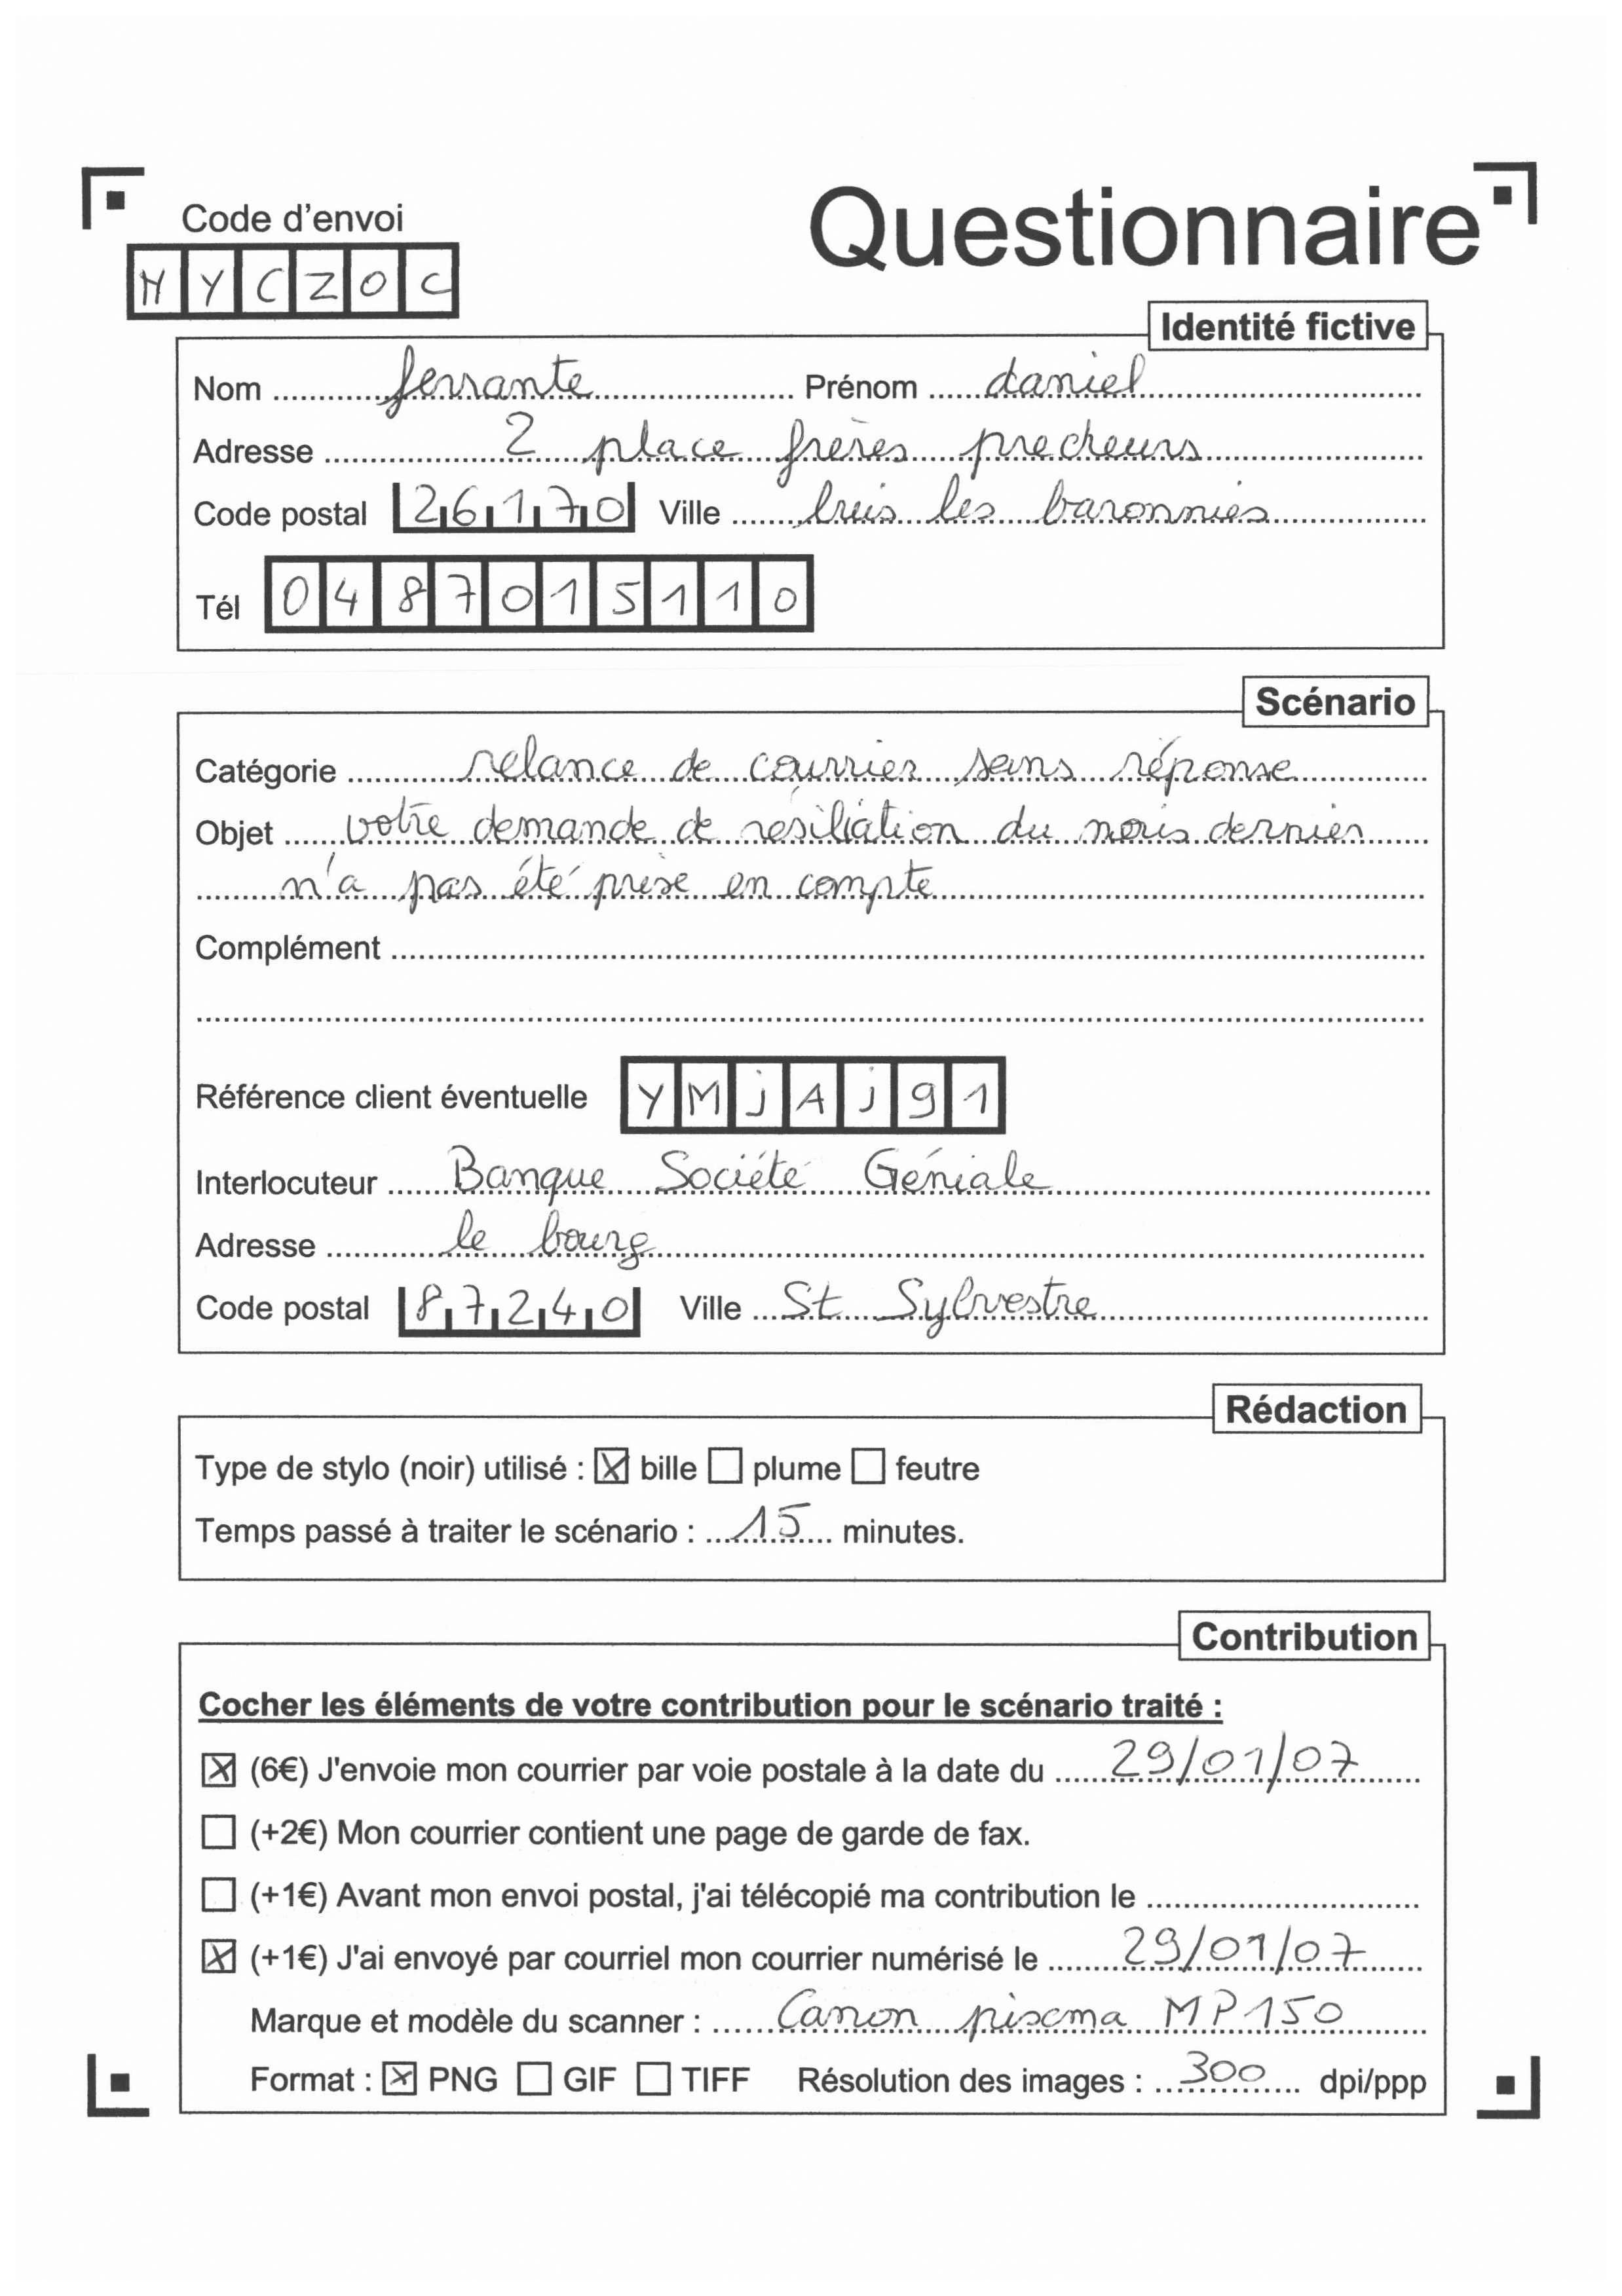 Code d'envoi
Questionnaire
NYCZOC
Identité fictive
Nom ferrante Prénom daniel
Adresse 2 place frères precheurs
Code postal 26170 Ville buis les baronnies
Tél 0487015110
Scénario
Catégorie relance de courrier sans réponse
Objet votre demande de résiliation du mois dernier
n'a pas été prise en compte
Complément
Référence client éventuelle YMjAj91
Interlocuteur Banque Société Géniale
Adresse le bourg
Code postal 87240 Ville St Sylvestre
Rédaction
Type de stylo (noir) utilisé : ☒ bille ☐ plume ☐ feutre
Temps passé à traiter le scénario : 15 minutes.
Contribution
Cocher les éléments de votre contribution pour le scénario traité :
☒ (6€) J'envoie mon courrier par voie postale à la date du 29/01/07
☐ (+2€) Mon courrier contient une page de garde de fax.
☐ (+1€) Avant mon envoi postal, j'ai télécopié ma contribution le
☒ (+1€) J'ai envoyé par courriel mon courrier numérisé le 29/01/07
Marque et modèle du scanner : Canon piscma MP150
Format : ☒ PNG ☐ GIF ☐ TIFF Résolution des images : 300 dpi/ppp